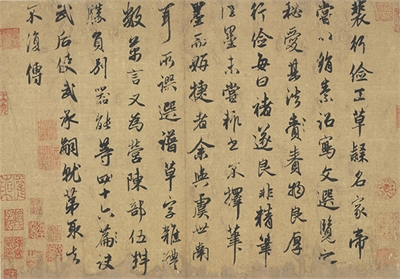 裴行儉工草隸名家帝
嘗以絹素詔寫文選覽之
秘愛其法賚物良厚
行儉每曰褚遂良非精筆
佳墨未嘗輒書不擇筆
墨而妍捷者余與虞世南
耳所撰選譜草字雜體
數萬言又為營陳部伍料
勝負別器能等四十六篇訣
武后使武承嗣就第取去
不復傳